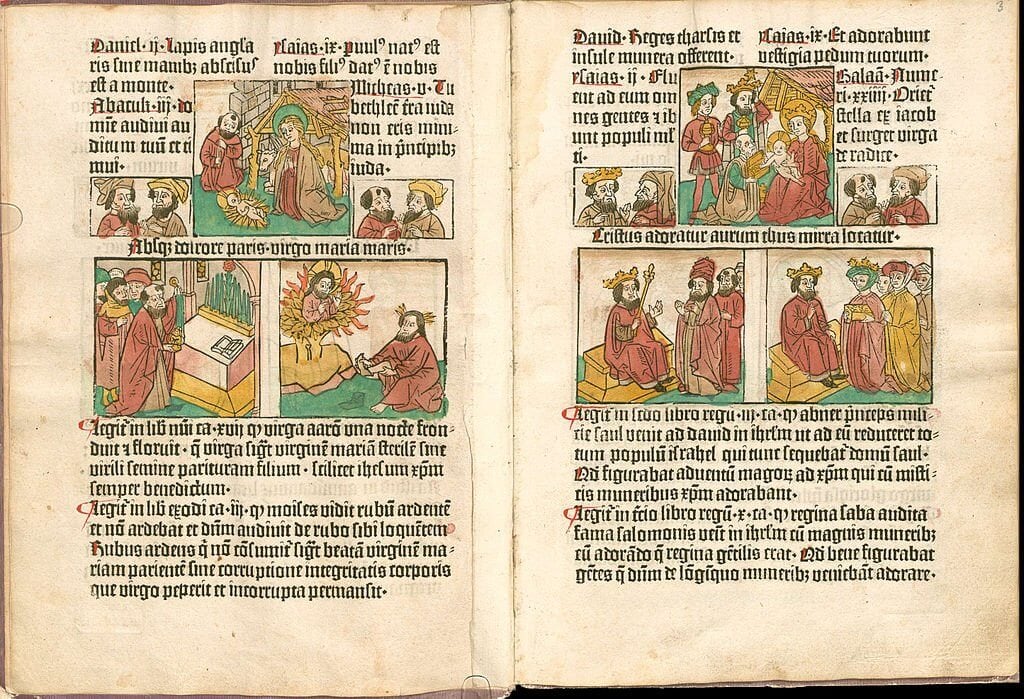 Daniel· ij· Lapis angła
ris sine manibꝫ abscisus
est a monte·
Abacuk· iij· do
mīe audiui au
ditum tuū et ti
mui·
ysaias· ix· puulꝰ natꝰ est
nobis filꝰ datꝰ ē nobis
Micheas· v· Tu
bethleē t̄ra iuda
non eris mini⸗
ma in p̄ncipibꝫ
iuda·
Absqꝫ dolore paris· virgo maria maris·
Legit᷑ in lib̄ nūi ca· xvij ꝙ virga aarō vna nocte fron
duit ⁊ floruit· q̄ virga sigt᷑ virginē mariā sterilē sine
virili semine parituram filium· scilicet ihesum xp̄m
semper benedictum·
Legit᷑ in lib̄ exodi ca· iij· ꝙ moises vidit rubū ardentē
et nō ardebat et dn̄m audiuit de rubo sibi loquētem
Rubus ardens q̄ nō cōsumit᷑ sigt᷑ beatā virginē ma⸗
riam parientē sine corruptione integritatis corporis
que virgo peperit et incorrupta permansit·
3
Dauid· Reges tharsis et
insule munera offerent·
ysaias· ij· Flu
ent ad eum om
nes gentes ⁊ ib
unt populi ml̄
ti·
ysaias· ix· Et adorabunt
vestigia pedum tuorum·
Balaā· Nume
ri· xxiiij· Oriet᷑
stella ex iacob
et surget virga
de radice·
Cristus adoratur aurum thus mirra locatur·
Legit᷑ in scd̄o libro regū· iij· ca· ꝙ abner p̄nceps mili
cie saul venit ad dauid in ihrl̄m ut ad eū reduceret to⸗
tum populū israhel qui tunc sequebat᷑ domū saul·
Qd̄ figurabat aduentū magoꝝ ad xp̄m qui eū misti⸗
cis muneribus xp̄m adorabant·
Legit᷑ in t̄cio libro regū· x· ca· ꝙ regina saba audita
fama salomonis veīt in ihrl̄m cū magnis muneribꝫ
eū adorādo q̄ regina gētilis erat· Qd̄ bene figurabat
gētes q̄ dn̄m de lōgīquo muneribꝫ veniebāt adorare·